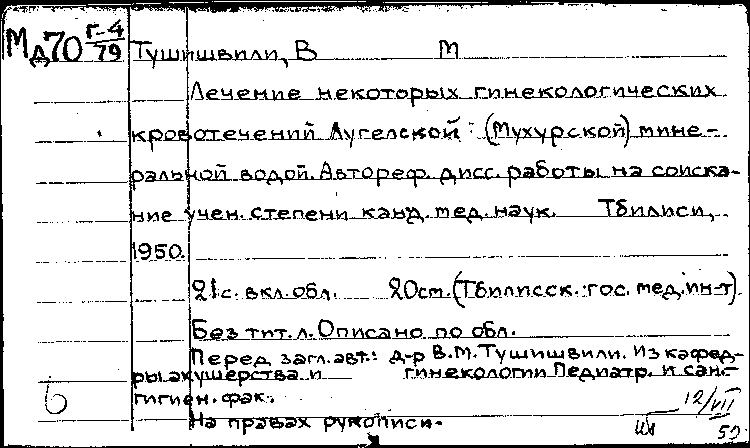 Мд70 Г-4/79
Тушишвили, В М
Лечение некоторых гинекологических
кровотечений Лугелской (Мухурской) мине-
ральной водой. Автореф. дисс. работы на соиска-
ние учен. степени канд. мед. наук. Тбилиси,
1950.
21 с. вкл. обл. 20 см. (Тбилисск. гос. мед. ин-т).
Без тит. л. Описано по обл.
Перед загл. авт.: д-р В. М. Тушишвили. Из кафед-
ры акушерства и гинекологии Педиатр. и сан.-
гигиен. фак.
На правах рукописи.
Б
12/VII
50